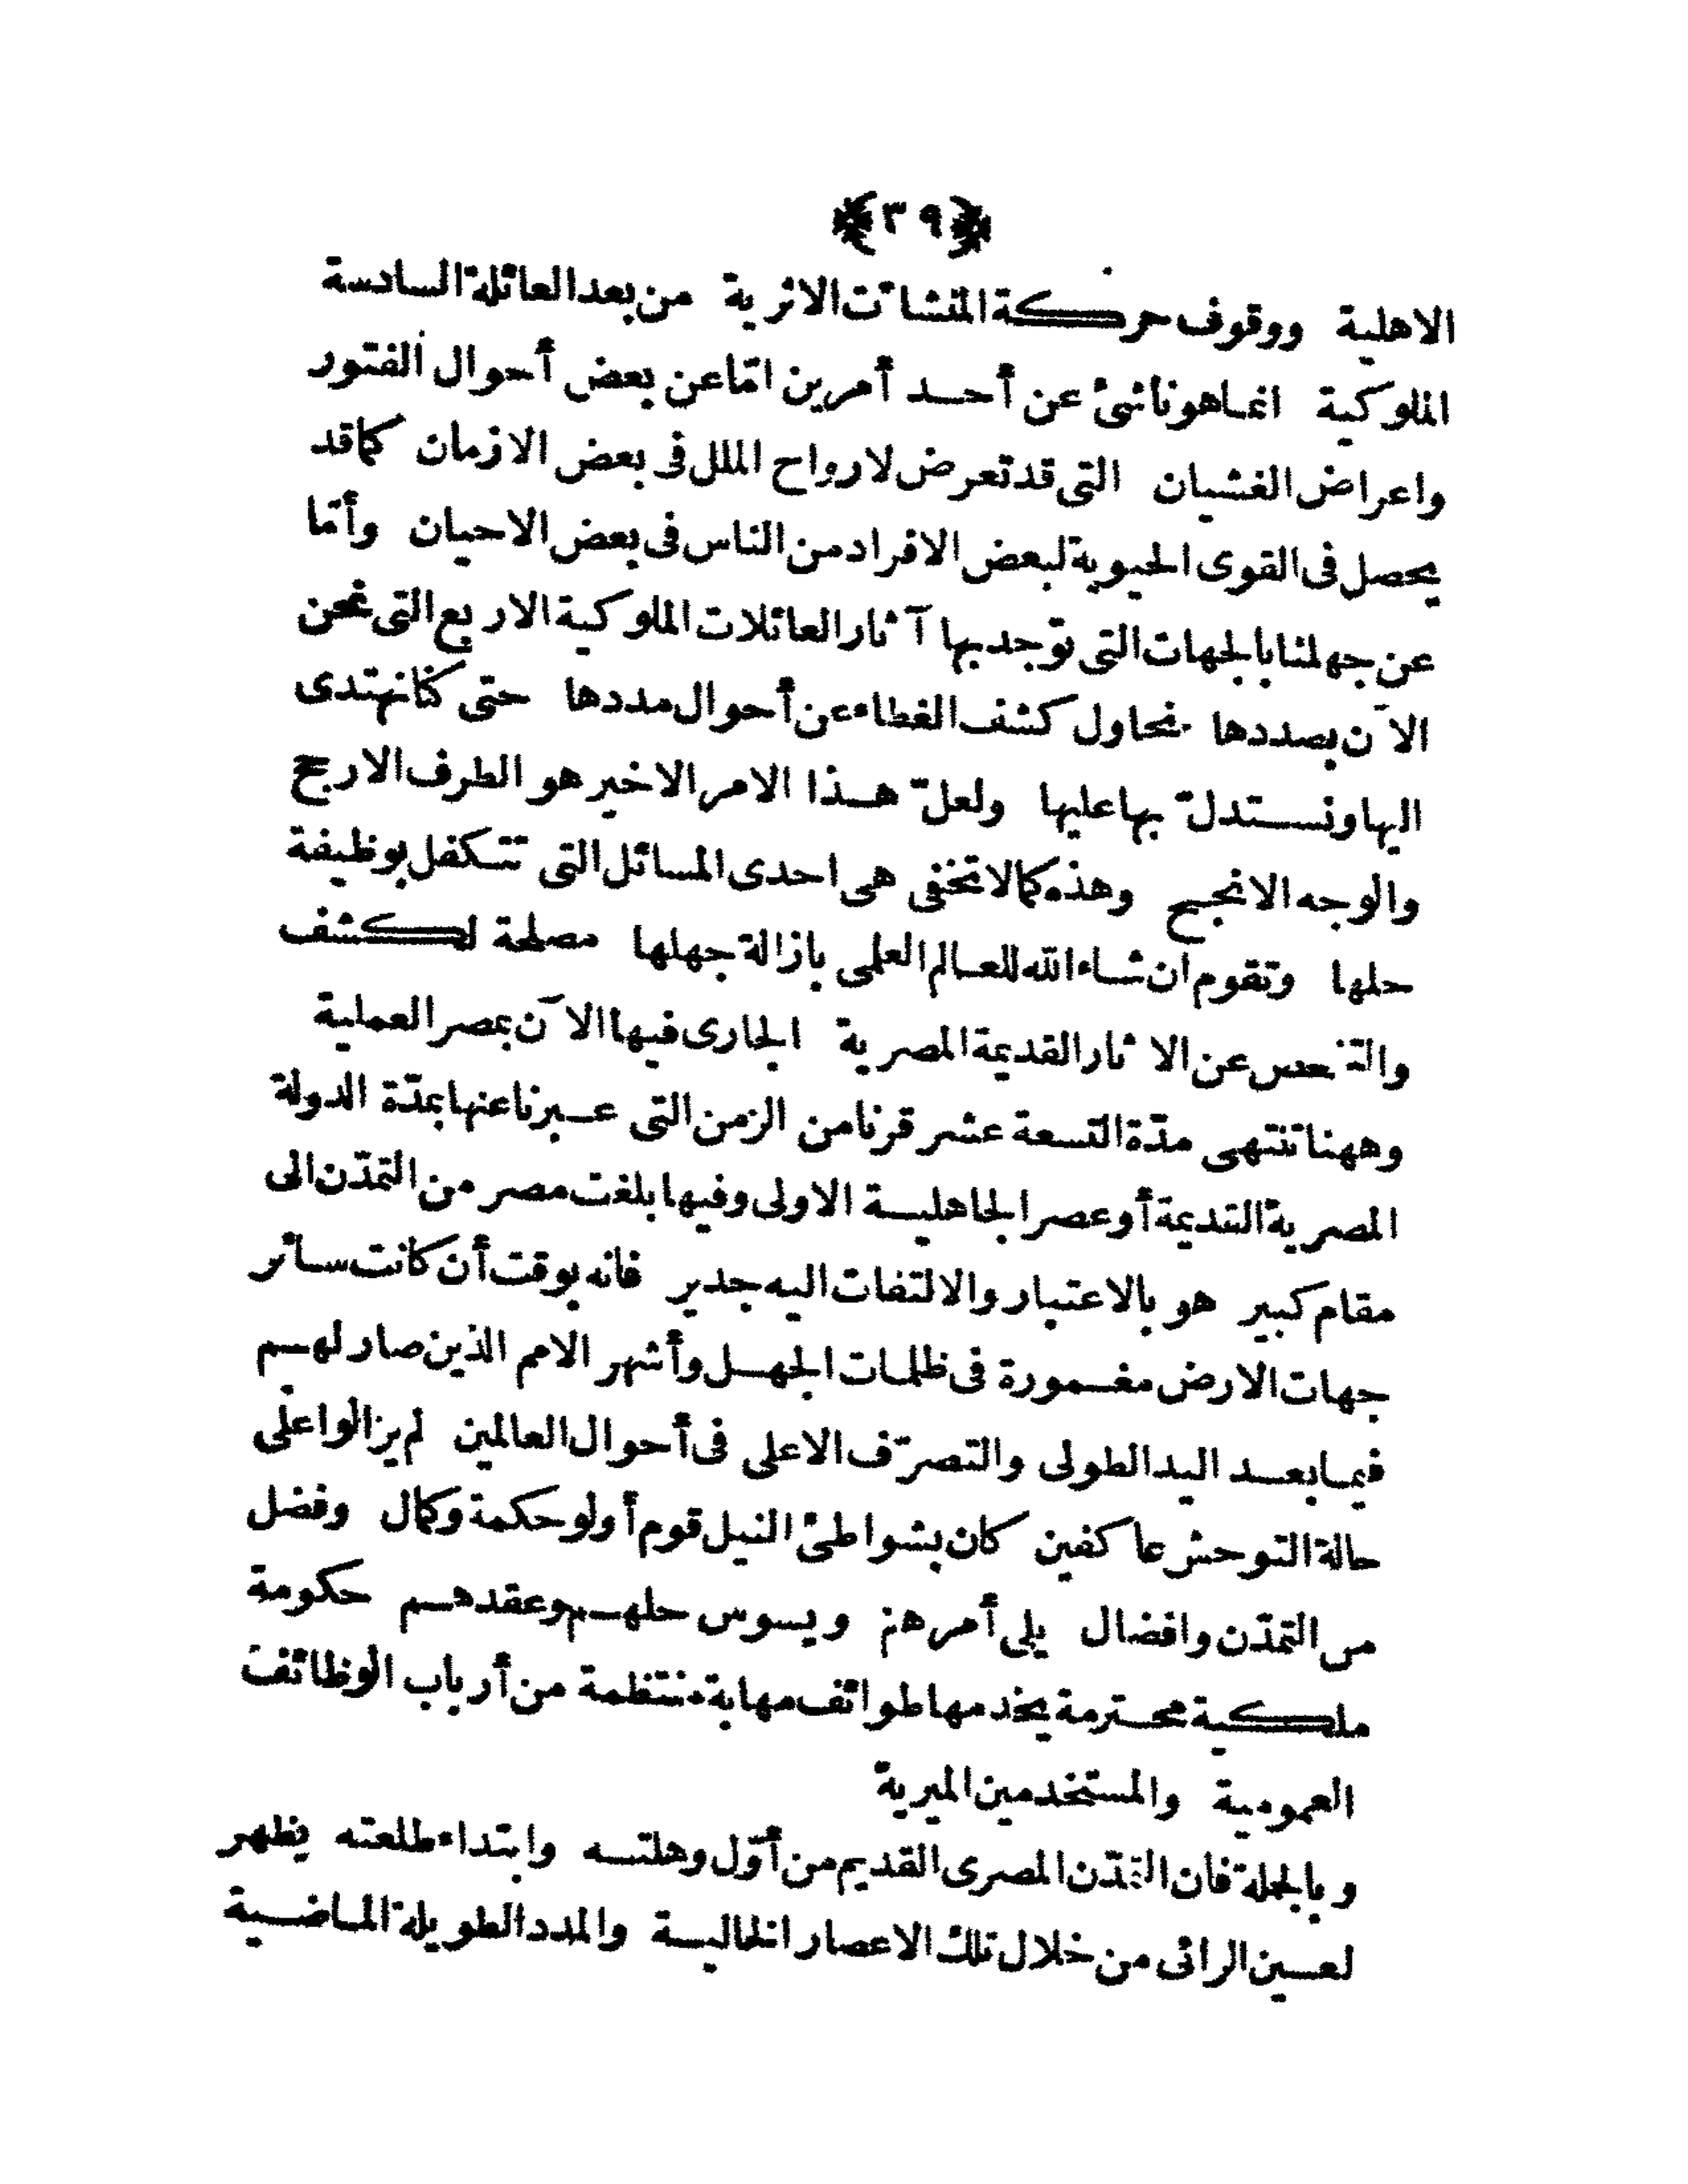 ﴿٣٩﴾
الاهلية ووقوف حركة المنشآت الاثرية من بعد العائلة السادسة
الملوكية انما هو ناشئ عن أحد أمرين امّا عن بعض أحوال الفتور
واعراض الغشيان التى قد تعرض لارواح الملل فى بعض الازمان كما قد
يحصل فى القوى الحيوية لبعض الافراد من الناس فى بعض الاحيان وأمّا
عن جهلنا بالجهات التى توجد بها آثار العائلات الملوكية الاربع التى نحن
الآن بصددها نحاول كشف الغطاء عن أحوال مددها حتى كنّا نهتدى
اليها ونستدلّ بها عليها ولعلّ هذا الامر الاخير هو الطرف الارجح
والوجه الانجح وهذه كما لا تخفى هى احدى المسائل التى تتكفل بوظيفة
حلها وتقوم ان شاء الله للعالم العلمى بازالة جهلها مصلحة الكشف
والتفحص عن الآثار القديمة المصرية الجارى فيها الآن بمصر العملية
وههنا تنتهى مدّة التسعة عشر قرنا من الزمن التى عبرنا عنها بمدّة الدولة
المصرية القديمة أو عصر الجاهلية الاولى وفيها بلغت مصر من التمدّن الى
مقام كبير هو بالاعتبار والالتفات اليه جدير فانه بوقت أن كانت سائر
جهات الارض مغمورة فى ظلمات الجهل وأشهر الامم الذين صار لهم
فيما بعد اليد الطولى والتصرّف الاعلى فى أحوال العالمين لم يزالوا على
حالة التوحش عاكفين كان بشواطئ النيل قوم أولو حكمة وكمال وفضل
من التمدّن وافضال يلى أمرهم ويسوس حلهم وعقدهم حكومة
ملكية محترمة يخدمها طوائف مهابة منتظمة من أرباب الوظائف
العمومية والمستخدمين الميرية
وبالجملة فان التمدّن المصرى القديم من أوّل وهلته وابتداء طلعته يظهر
لعين الرائى من خلال تلك الاعصار الخالية والمدد الطويلة الماضية